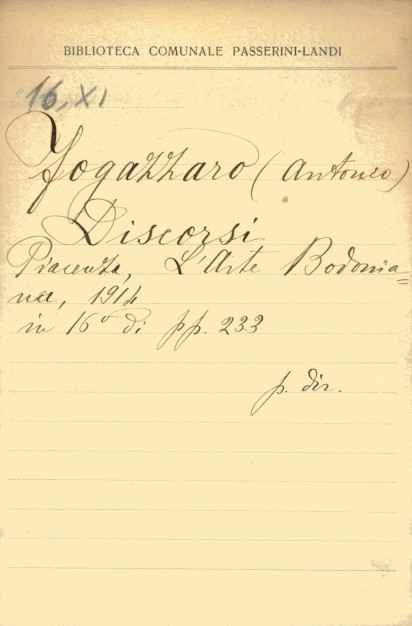 BIBLIOTECA COMUNALE PASSERINI-LANDI
16, XI
Fogazzaro (Antonio)
Discorsi
Piacenza, L'Arte Bodonia=
na, 1914
in 16° di pp. 233
p. dir.